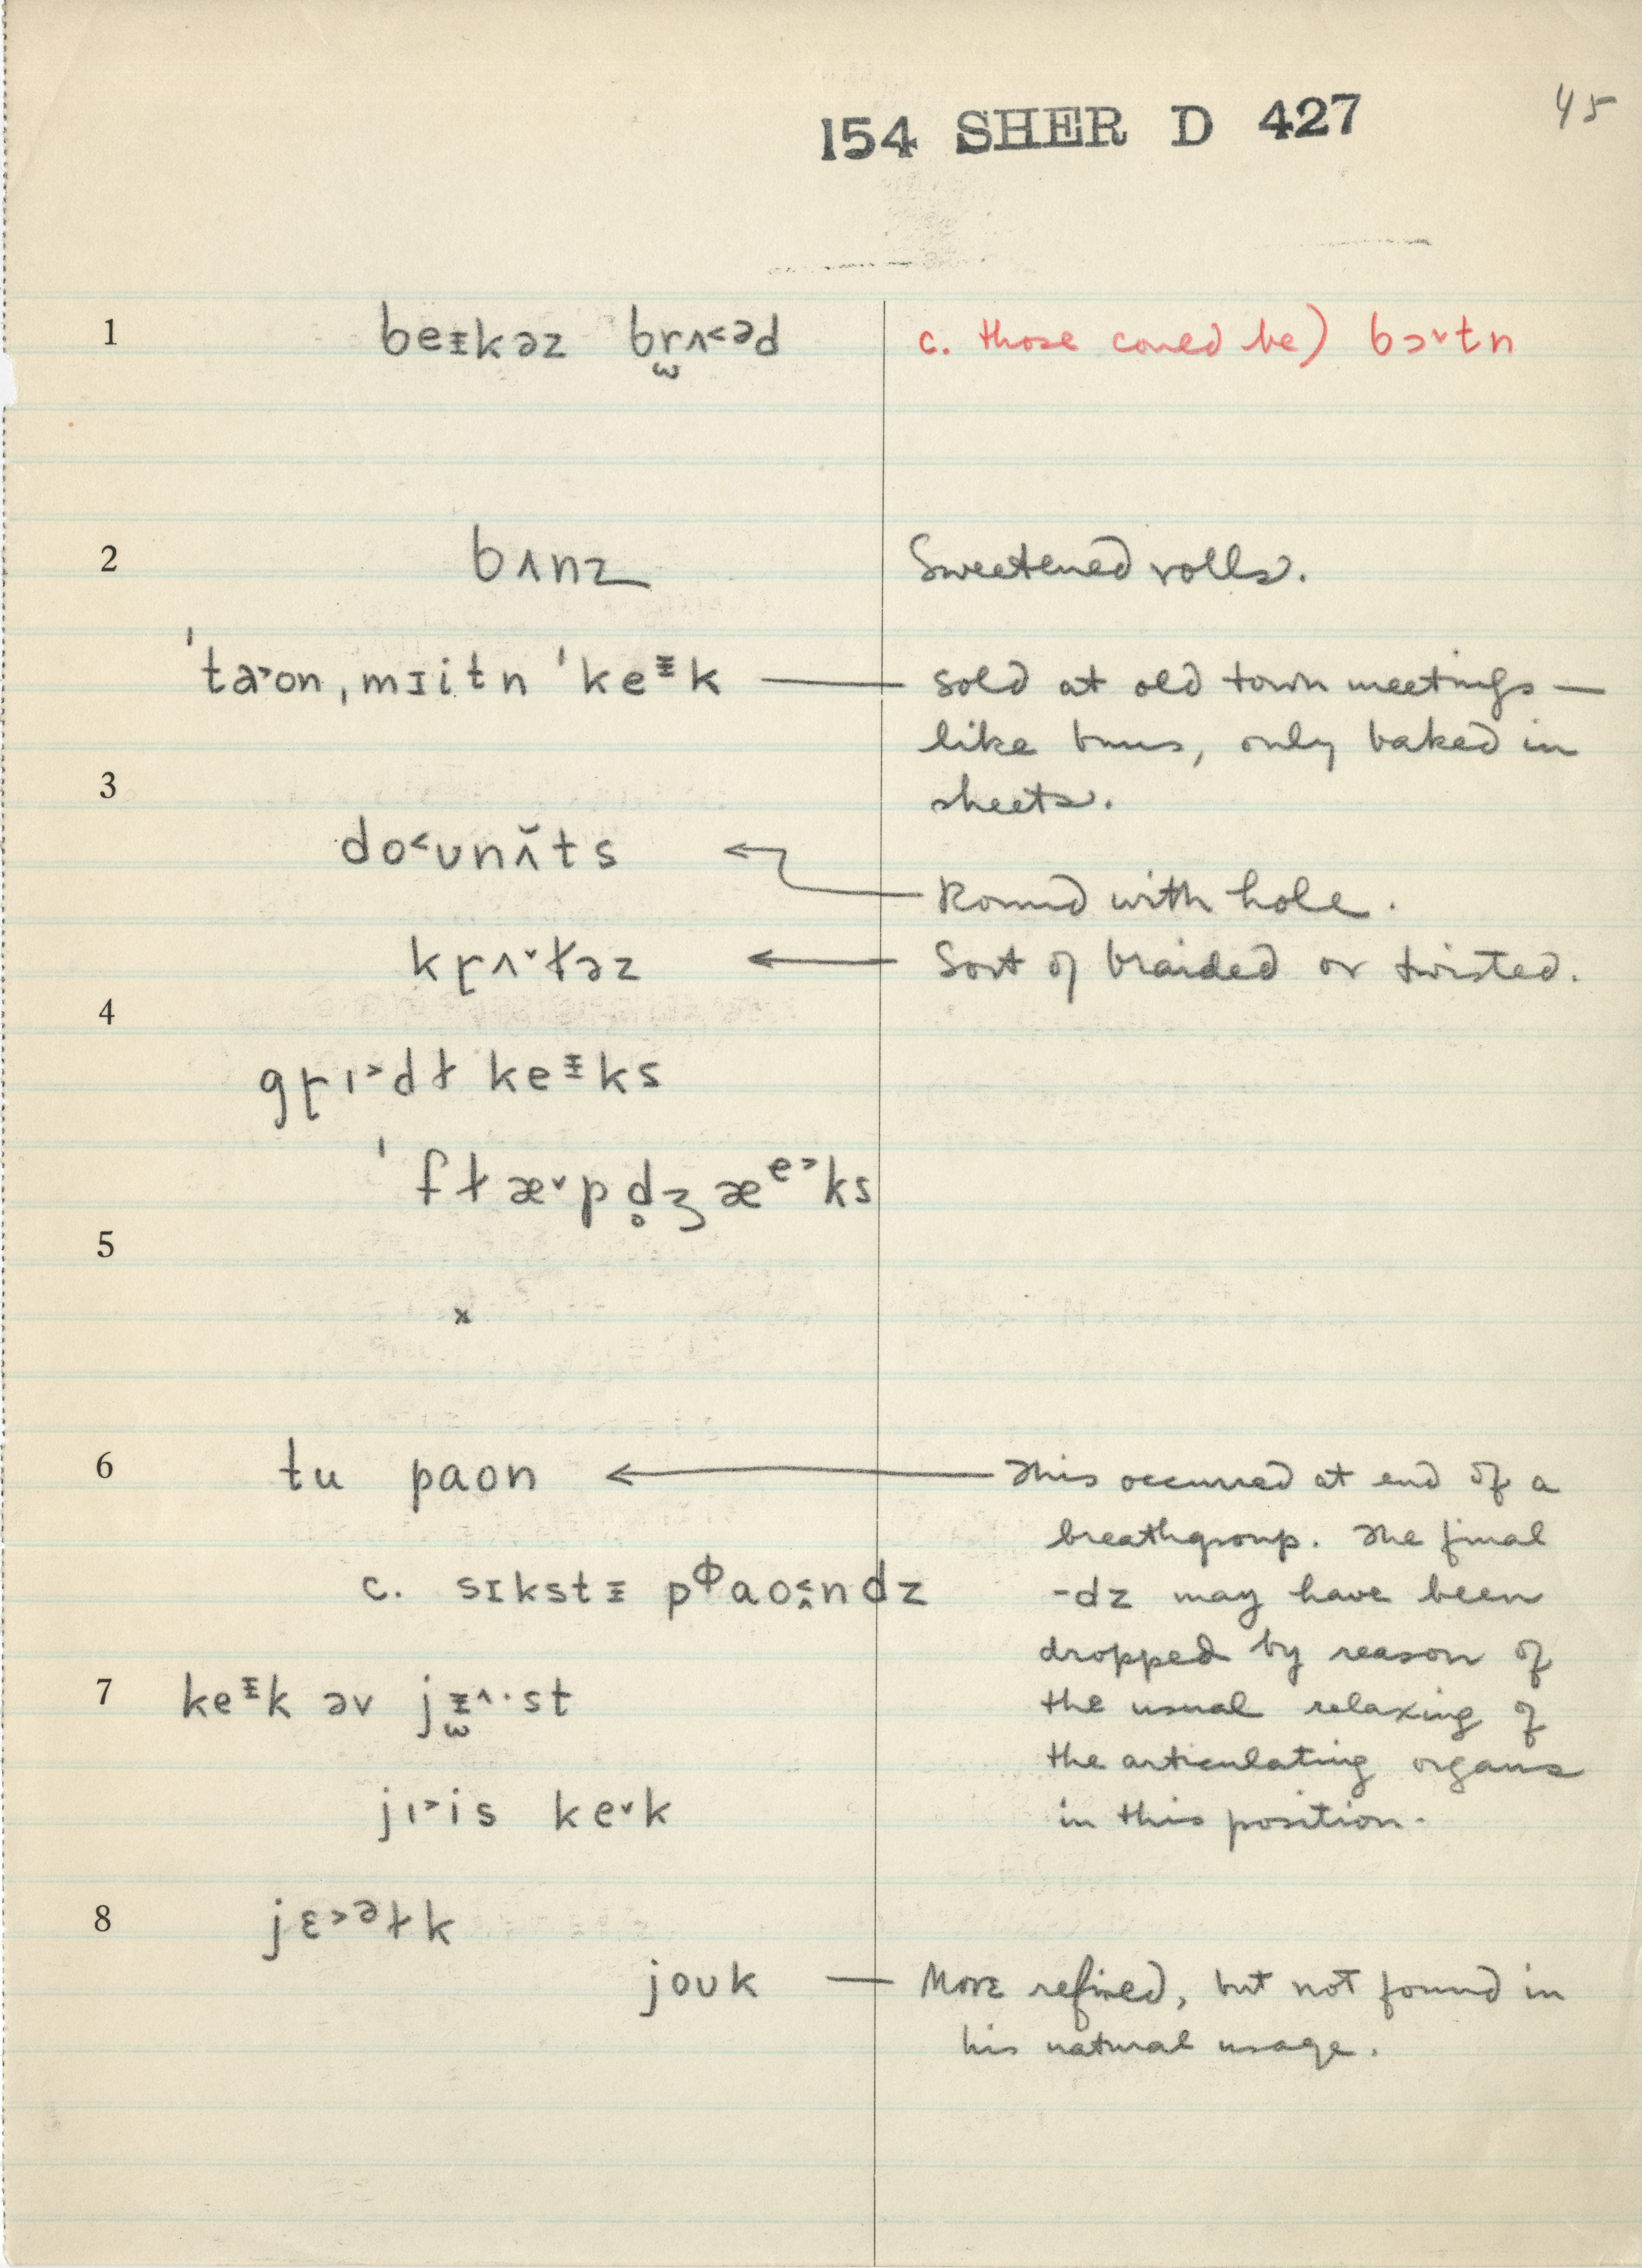 154 SHER D 427
45
1 beᵻkəz br̯ʌ˂əd c. those could be) bɔ˅tn
2 bʌnz Sweetened rolls.
ˈta˃on ˌmɪitn ˈkeᵻk — Sold at old town meetings —
like buns, only baked in
3
sheets.
do˂ʊnʌ̆ts ←
Round with hole.
kɽʌ˅ɫəz ← Sort of braided or twisted.
4
gɽɪ˃dɫ keᵻks
ˈfɫæ˅pd̥ʒæᵉ˃ks
5
x
6 tu paon ← This occurred at end of a
breathgroup. The final
c. sɪkstᵻ pᶲao˂̭ndz -dz may have been
dropped by reason of
7 keᵻk əv jᵻ̫^·st the usual relaxing of
the articulating organs
jɪ˃is ke˅k in this position.
8 jɛ˃ᵊɫk
joʊk — More refined, but not found in
his natural usage.